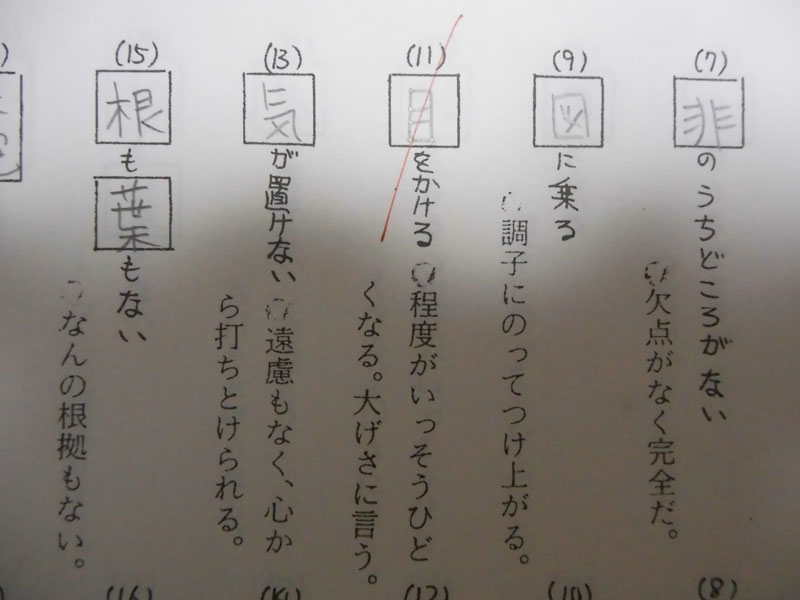 (7)
非のうちどころがない
欠点がなく完全だ。
(9)
図に乗る
調子にのってつけ上がる。
(11)
目をかける
程度がいっそうひど
くなる。大げさに言う。
(13)
気が置けない
遠慮もなく、心か
ら打ちとけられる。
(15)
根も葉もない
なんの根拠もない。
(8)
(10)
(12)
(14)
(16)